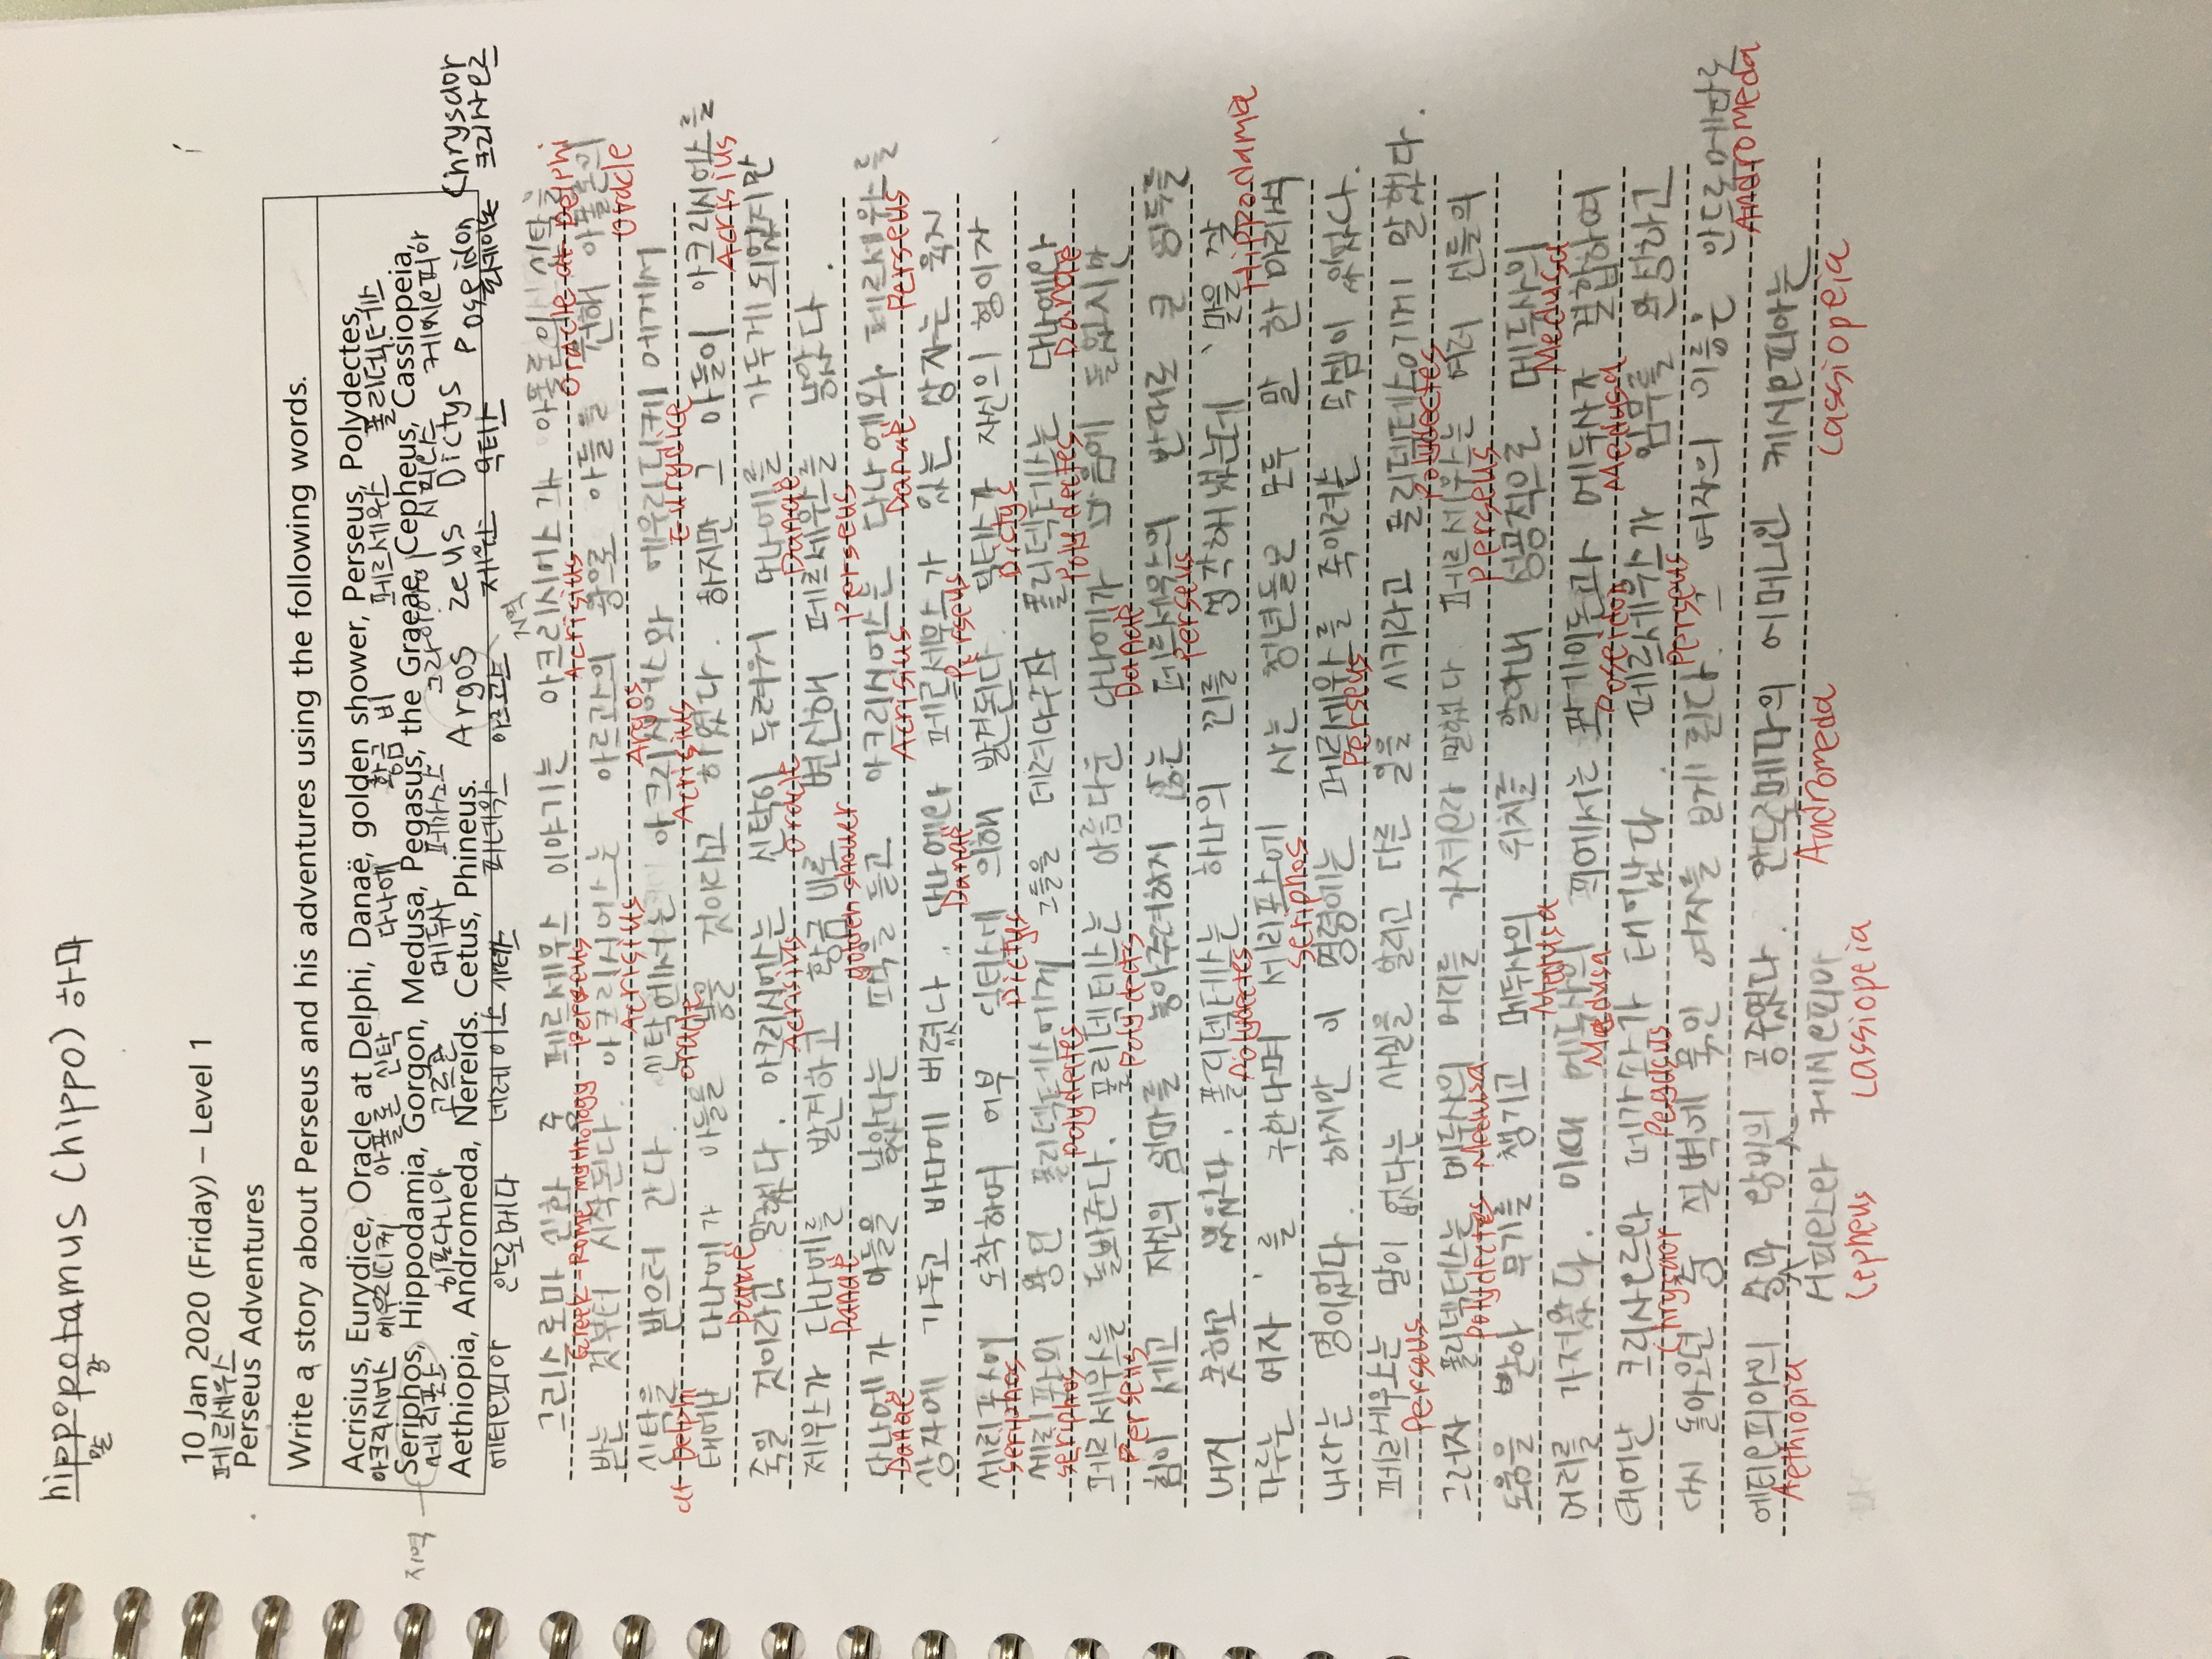 hippopotamus (hippo) 하마
말 강
10 Jan 2020 (Friday) – Level 1
페르세우스
Perseus Adventures
Write a story about Perseus and his adventures using the following words.
Acrisius, Eurydice, Oracle at Delphi, Danaë, golden shower, Perseus, Polydectes,
아크리시언스 에우리디케 아폴론 신탁 다나에 황금 비 페르세우스 폴리덱테스
Seriphos, Hippodamia, Gorgon, Medusa, Pegasus, the Graeae, Cepheus, Cassiopeia,
지역 세리포스 히포다니아 고르곤 메두사 페가소스
Aethiopia, Andromeda, Nereids. Cetus, Phineus. Argos Zeus Dictys Poseidon Chrysaor
에티오피아 안드로메다 네레이스 지역 제우스 딕티스 크리사오르
그리스로마 신화 중 페르세우스 이야기는 아크리시어스가 아폴론의 신탁을
Greek-Rome mythology Perseus Acrisius Oracle at Delphi
받는 것부터 시작된다. 아크리시어스는 아르고스의 왕으로 아들을 원해 아폴론의
Acrisius Argos Oracle
신탁을 받으러 간다. 신탁에서는 아크리시어스와 에우리디케 에게서
at Delphi oracle Acrisius Eurydice
태어난 다나에가 아들을 낳을 것이라고 하였다. 하지만 그 아들이 아크리시어스를
Danaë Acrisius
죽일 것이라고 말했다. 아크리시어스는 신탁이 두려워 다나에를 가두게 되었지만
Acrisius Oracle Danaë
제우스가 다나에를 발견하고 황금 비로 변신해 페르세우스를 낳았다.
Danaë golden shower Perseus
다나에가 아들을 낳았다는 소식을 듣고 아크리시어스는 다나에와 페르세우스를
Danaë Acrisius Danaë Perseus
상자에 가두고 바다에 버렸다. 다나에와 페르세우스가 있는 상자는 육지
Danaë Perseus
세리포스에 도착하여 어부 딕티스에 의해 발견된다. 딕티스가 자신의 형이자
Seriphos Dictys Dictys
세리포스의 왕인 폴리덱테스에게 그들을 데려다주자 폴리덱테스는 다나에와
Seriphos Polydectes Polydectes Danaë
페르세우스를 돌봐준다. 폴리덱테스는 아름다운 다나에가 마음에 들었지만
Perseus Polydectes Danaë
힘이 세고 자신의 엄마를 놓아주려하지 않는 페르세우스의 반대로 큰 힘들을
Perseus
내지 못하고 있었다. 폴리덱테스는 하나의 꾀를 생각해 냈는데, 말을 잘
Polydectes Hippodamia
다루는 여자, 를 구한다며 세리포스에 사는 청년들은 모두 말 한 마리씩
Seriphos
내라는 명이었다. 하지만 이 명령에는 페르세우스를 죽이려는 속셈이 있었다.
Perseus
페르세우스는 말이 없다는 사실을 알리고 다른 일을 시키라고 폴리덱테스에게 말했다.
Perseus Polydectes
그러자 폴리덱테스는 메두사의 머리를 가져오라 말했다. 페르세우스는 여러 신들의
Polydectes Medusa Perseus
도움을 받아 무기를 챙기고 메두사의 위치를 알아내 성공적으로 메두사의
Medusa Medusa
머리를 가져왔다. 이때 메두사의 피에서는 포세이돈과 메두사가 결합하여
Medusa Poseidon Medusa
태어난 크리사오르와 페가소스가 태어났다. 페르세우스가 임무를 완성하고
Chrysaor Pegasus Perseus
다시 돌아오던 중 절벽에 묶인 여자를 보게 된다. 여자의 이름은 안드로메다로
Andromeda
에티오피아의 왕과 왕비의 공주였다. 안드로메다의 어머니인 케시오피아는
Aethiopia Andromeda Cassiopeia
케시오피아
Cepheus Cassiopeia